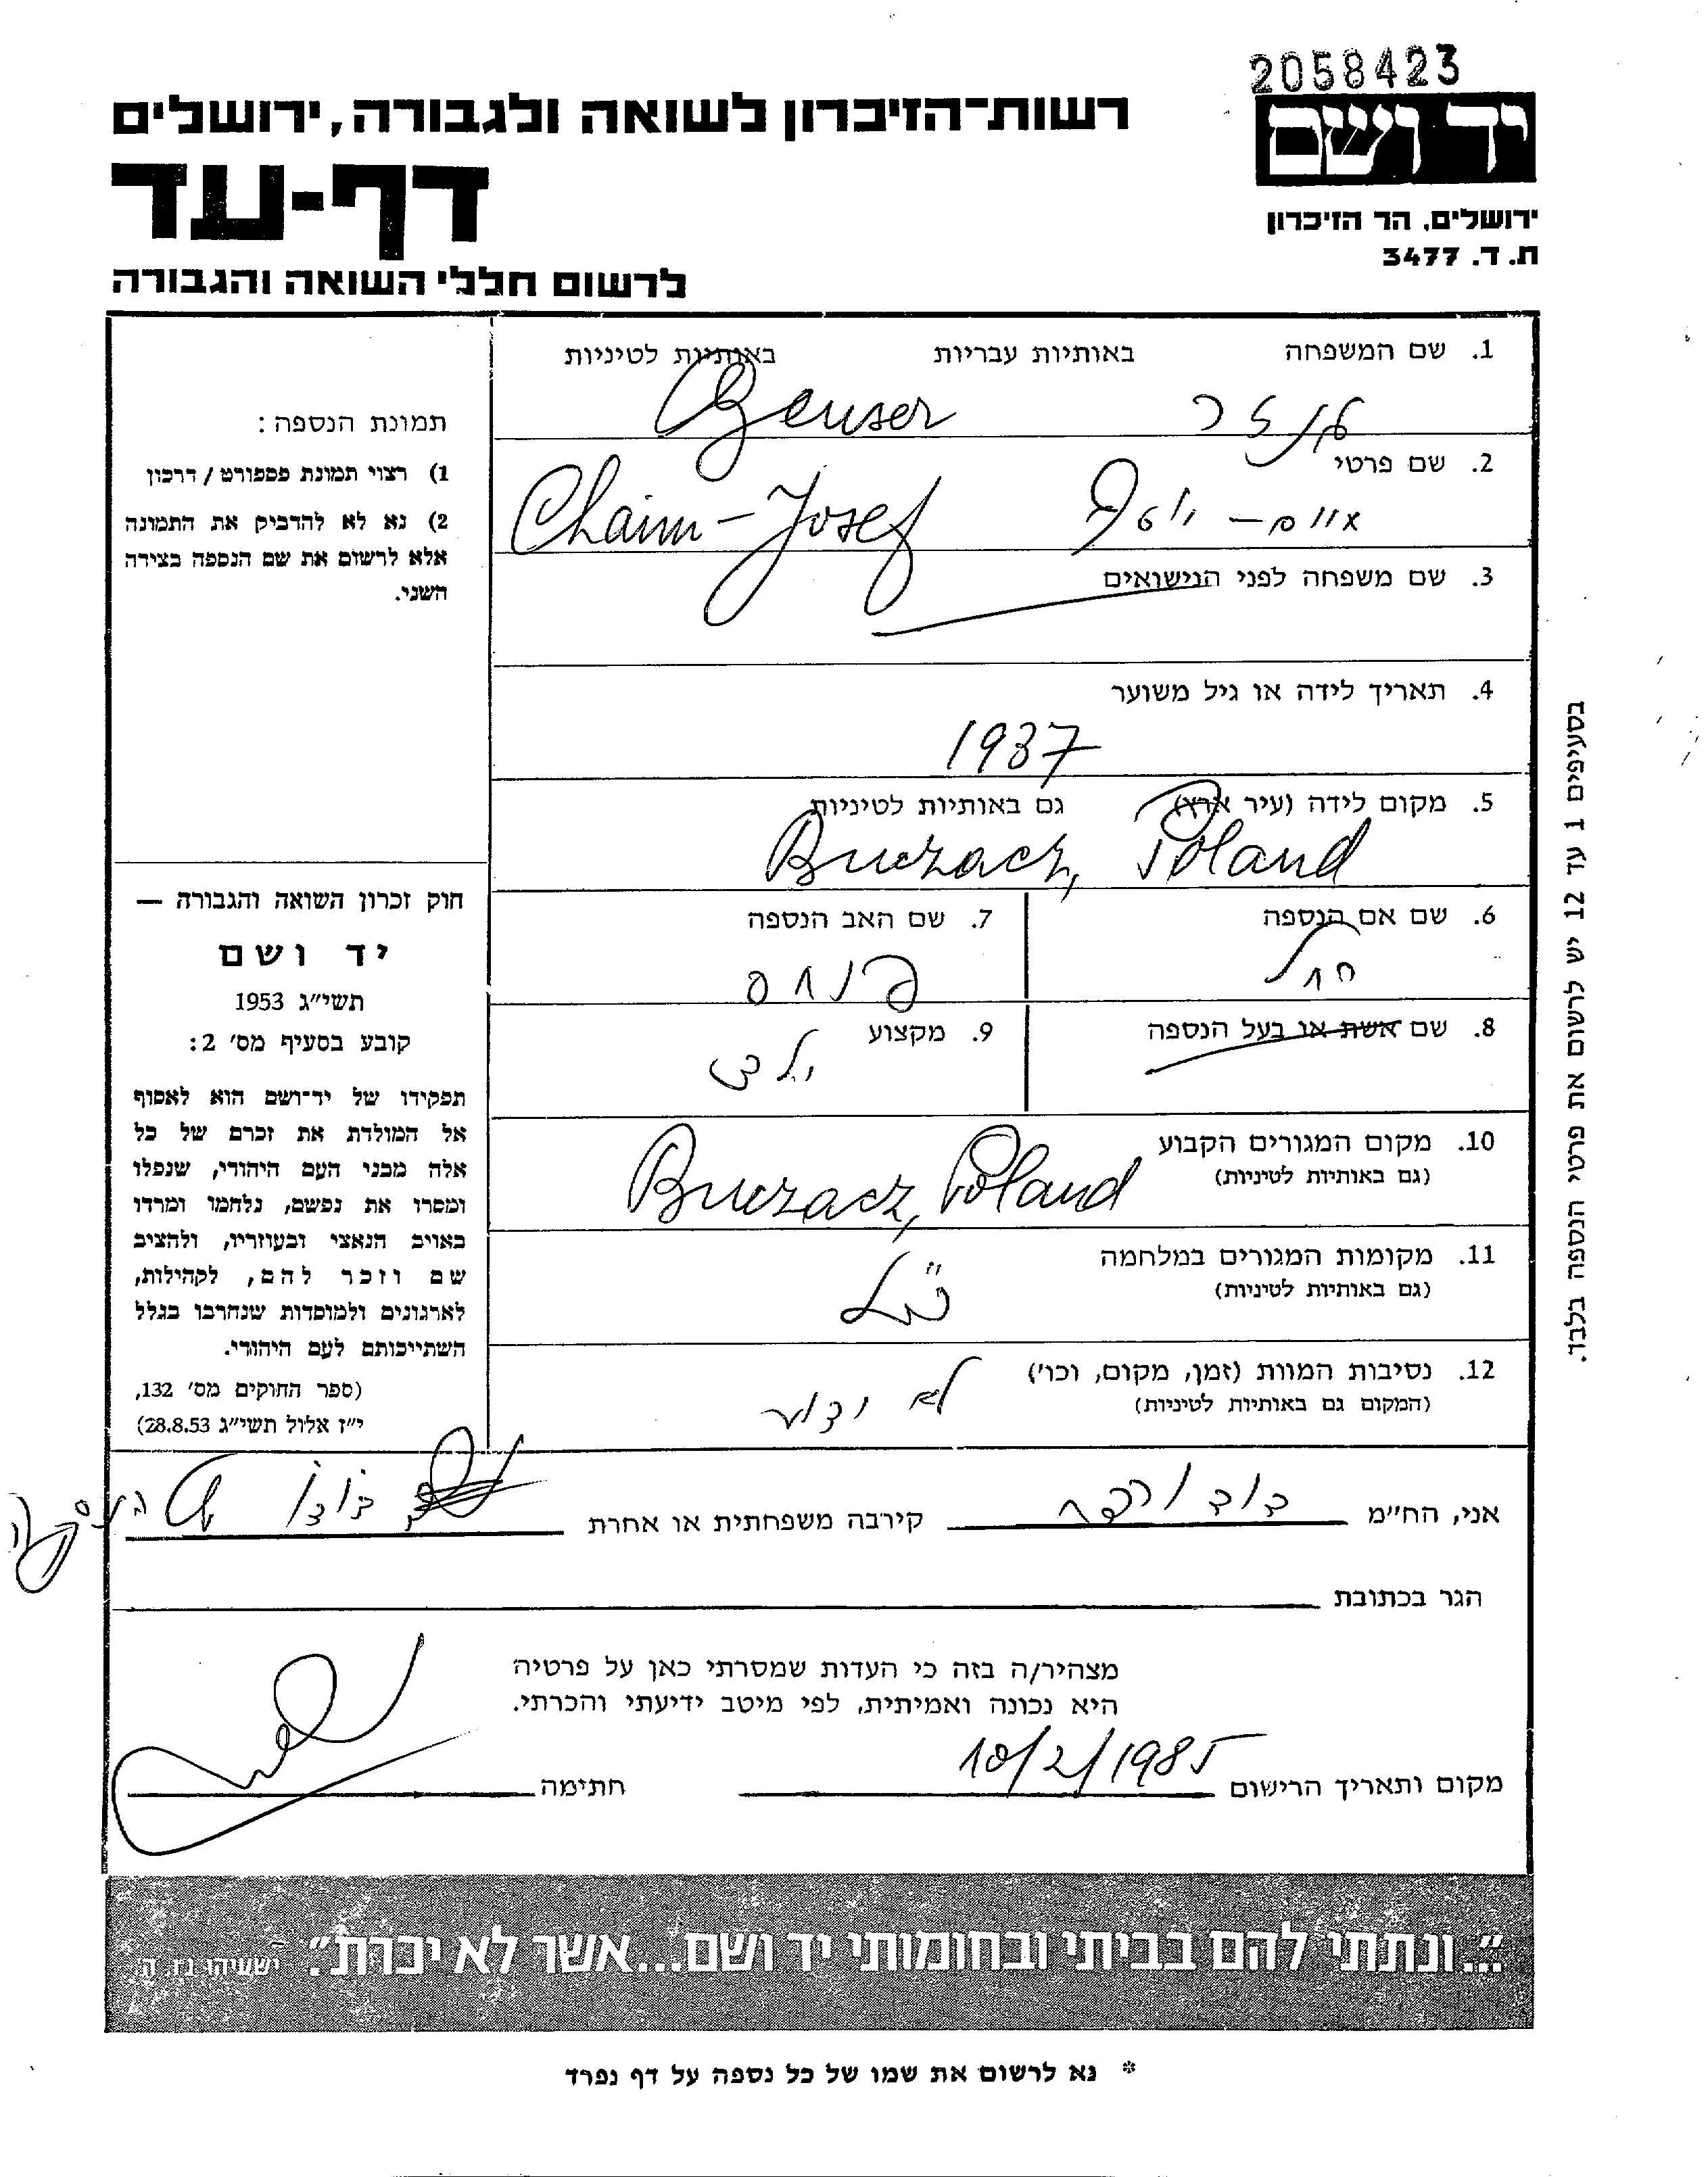 2058423
יד ושם
ירושלים, הר הזיכרון
ת. ד. 3477
רשות-הזיכרון לשואה ולגבורה, ירושלים
דף-עד
לרשום חללי השואה והגבורה
1. שם המשפחה באותיות עבריות באותיות לטיניות
Genser
2. שם פרטי
חיים – יוסף Chaim-Josef
3. שם משפחה לפני הנישואים
4. תאריך לידה או גיל משוער
1937
5. מקום לידה (עיר ארץ) גם באותיות לטיניות
Buczacz, Poland
6. שם אם הנספה
רחל
7. שם האב הנספה
פנחס
8. שם אשת או בעל הנספה
9. מקצוע
ילד
10. מקום המגורים הקבוע
(גם באותיות לטיניות)
Buczacz, Poland
11. מקומות המגורים במלחמה
(גם באותיות לטיניות)
כנ"ל
12. נסיבות המוות (זמן, מקום, וכו')
(המקום גם באותיות לטיניות)
לא ידוע
תמונת הנספה:
1) רצוי תמונת פספורט / דרכון
2) נא לא להדביק את התמונה
אלא לרשום את שם הנספה בצידה
השני.
חוק זכרון השואה והגבורה —
יד ושם
תשי"ג 1953
קובע בסעיף מס' 2:
תפקידו של יד-ושם הוא לאסוף
אל המולדת את זכרם של כל
אלה מבני העם היהודי, שנפלו
ומסרו את נפשם, נלחמו ומרדו
באויב הנאצי ובעוזריו, ולהציב
שם וזכר להם, לקהילות,
לארגונים ולמוסדות שנחרבו בגלל
השתייכותם לעם היהודי.
(ספר החוקים מס' 132,
י"ז אלול תשי"ג 28.8.53)
בסעיפים 1 עד 12 יש לרשום את פרטי הנספה בלבד.
אני, הח"מ קירבה משפחתית או אחרת
הגר בכתובת
מצהיר/ה בזה כי העדות שמסרתי כאן על פרטיה
היא נכונה ואמיתית, לפי מיטב ידיעתי והכרתי.
מקום ותאריך הרישום 10/2/1985 חתימה
"...ונתתי להם בביתי ובחומותי יד ושם...אשר לא יכרת". ישעיהו נז, ה
* נא לרשום את שמו של כל נספה על דף נפרד